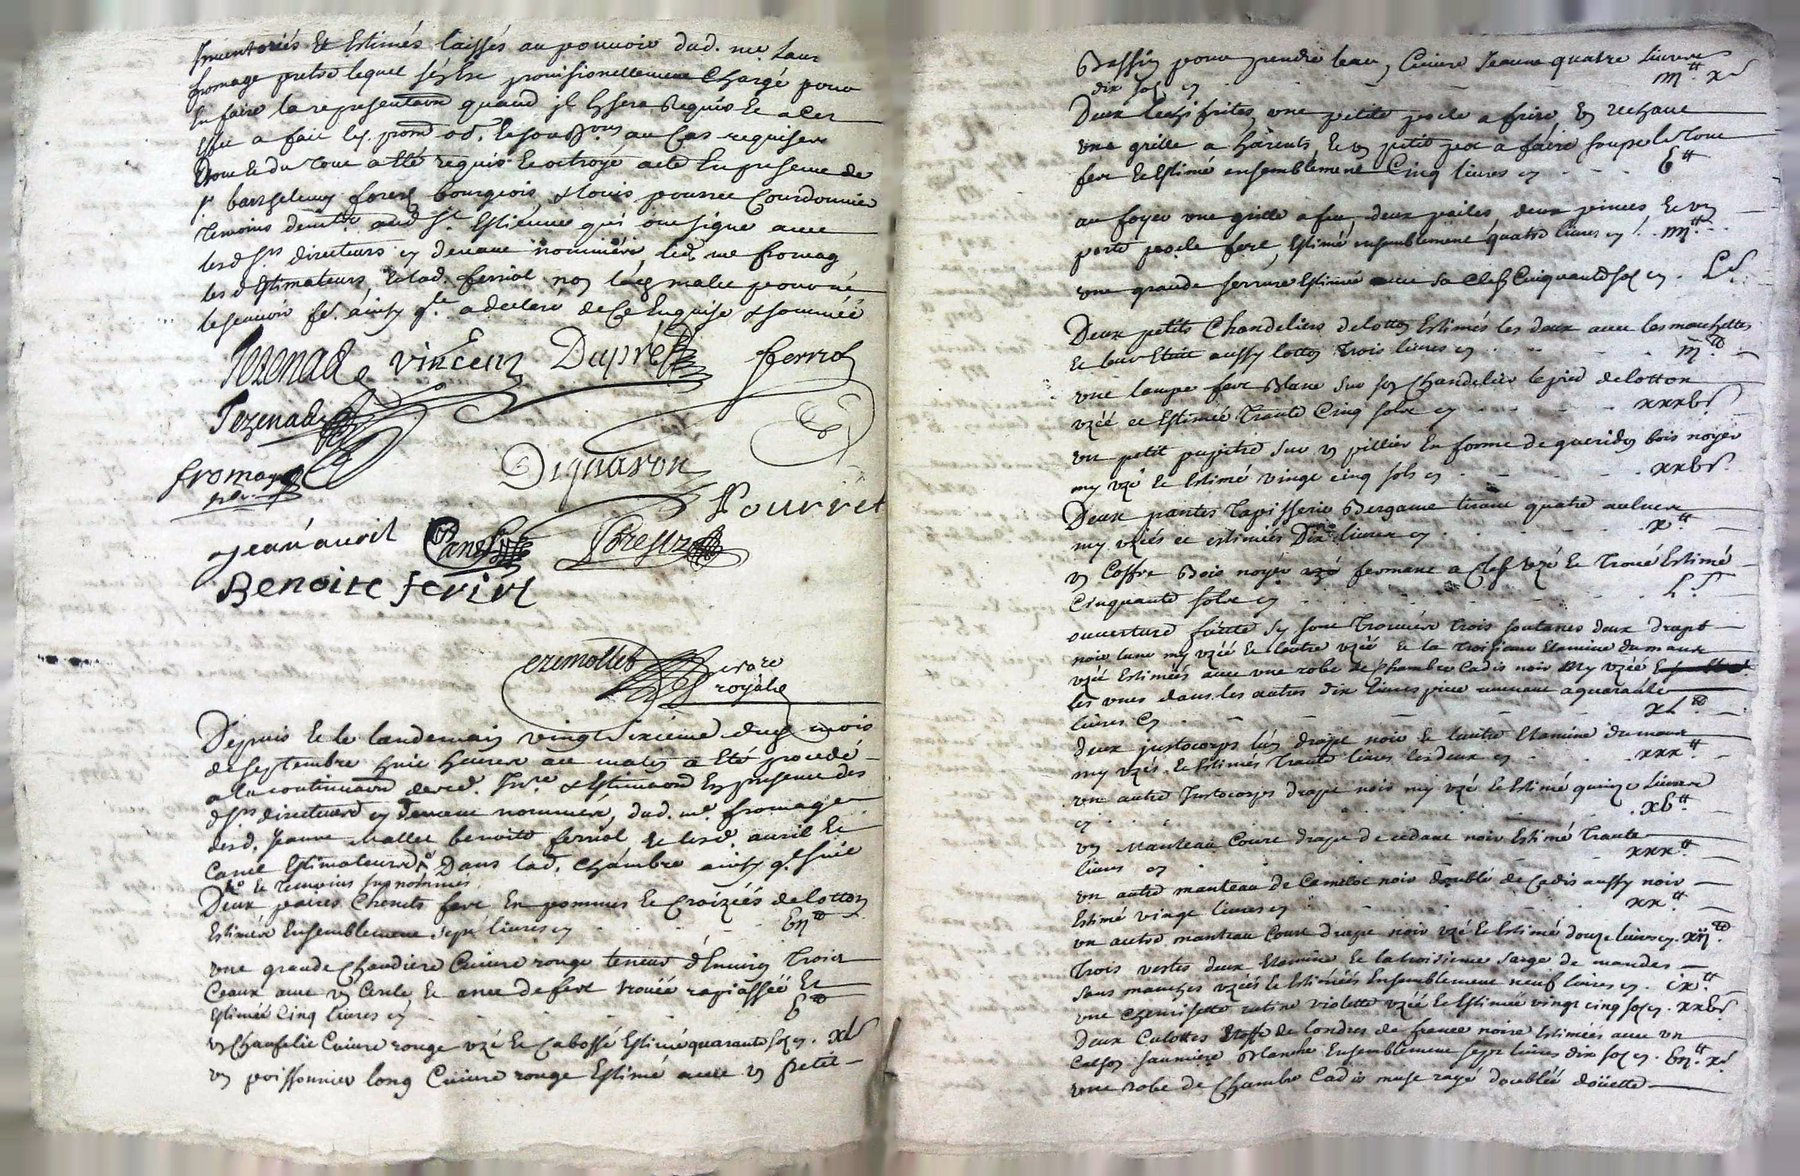 Inventoriés Et Estimés laissés au pouvoir dud. me Laur
fromage prebtre lequel sést Ere provisionellement Chargé pour
En faire la representaõn quand jl y sera Requis Et a Cet
Effet a fait les prom
Dont Et du tout a Eté requis Et octroyé acte En presence de
sr barthelemy forest bourgeois, & louis pourret Courdonnier
temoins demts aud St. Estienne qui ont signe avec
lesd srs directeurs cy devant nommés led. me fromag
les d Estimateurs, & lad. ferriol non laçd mallet pour ne
le sçavoir fe. ainsy ql.le a declaré de Ce Enquise & sommée
Tezenad vincent Dupré ferriol
Tezenad
fromage
pbr.
Dignaron
Pourret
jean avril Canel forestz
Benoite feriol
cremollet notre
royal
Depuis Et le landemain vingt sixieme dud. mois
de septembre huit heures au matin a Eté procedé
a la continuaõn dud. Inre. & Estimaõn En presence des
d. srs directeurs cy devant nommes, dud. me fromage
desd. Jeanne Mallet benoite ferriol, Et lesd avril Et
Canel Estimateurs Dans lad. Chambre ainsy q.l suit
Et temoins susnommés
Deux paires Chenets fert En pommes Et Croizées de lotton
Estimés Ensemblement sept livres cy bij tt
une grande Chaudiere Cuivre rouge teneur d'Environ trois
Ceaux avec un Cercle, Et ance de fert trouée rapiassée Et
Estimée Cinq livres cy b tt
un Chaufelit Cuivre rouge uzé Et Cabossé Estimé quarante sols cy. xl s
un poissonnier long Cuivre rouge Estimé avec un petit
Bassin pour prendre leau, Cuivre Jeaune quatre livres
dix sols cy iiij tt x s
Deux lechifrites, une petite poele a frire, un rechaut
une grille a harents, Et un petit pot a faire soupe le tout
fert Et Estimé ensemblement Cinq livres cy b tt
au foyer une grille a feu, deux pailes, deux pinces Et un
porte poele fert, Estimé ensemblement quatre livres cy iiij tt
une grande serrure Estimée avec sa Clef Cinquante sols cy. L s.
Deux petits Chandeliers de lotton Estimés les deux avec les mouchettes
Et leur Etuit aussy lotton trois livres cy iij tt
une lampe fert Blanc sur son Chandelier le pied de lotton
uzée et Estimée trante Cinq sols cy xxxb s
un petit pupitre sur un pillier En forme de gueridon bois noyer
my uzé Et Estimé vingt cinq sols cy xxb s
Deux pantes tapisserie Bergame tirant quatre aulnes
my uzées et estimées Dix livres cy x tt
un Coffre Bois noyer fermant a Clef uzé Et troué Estimé
Cinquante sols cy L s
ouverture faitte sy sont trouvées trois soutanes deux drapt
noir lune my uzée Et lautre uzée Et la troisieme Etamine du mans
uzée Estimées avec une robe de Chambre Cadis noir my uzée
les unes dans les autres dix livres piece revenant a quarante
livres Cy xL tt
deux justocorps lun drapt noir Et lautre Etamine du mans
my uzés Et Estimés trante livres les deux cy xxx tt
un autre Justocorps drapt noir my uzé Et Estimé quinze livres
cy xb tt
un Manteau Court drapt de cedant noir Estimé trante
livres cy xxx tt
un autre manteau de Camelot noir doublé de Cadis aussy noir
Estimé vingt livres cy xx tt
un autre manteau Court drapt noir uzé Et Estimé douze livres cy. xij tt
trois vestes deux Etamine Et la troisieme sarge de mandes
sans manches uzées Et Estimées Ensemblement neuf livres cy. ix tt
une Chemisette ratine violette uzée Et Estimée vingt cinq sols cy. xxb s
deux Culottes Etoffe de londres de france noire Estimées avec un
Calson saumiere Blanche Ensemblement sept livres dix sols cy. bij tt. x s
une robe de Chambre Cadis muse rayé doublée doüette